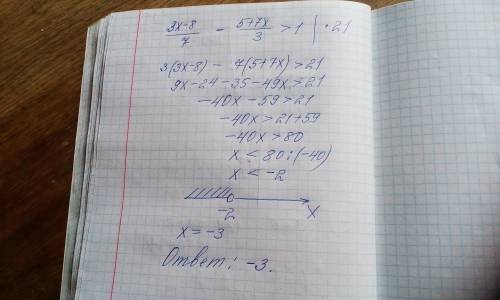 (3x-8)/7 - (5+7x)/3 > 1 | · 21
3(3x-8) - 7(5+7x) > 21
9x - 24 - 35 - 49x > 21
-40x - 59 > 21
-40x > 21 + 59
-40x > 80
x < 80 : (-40)
x < -2
-2 x
x = -3
Ответ: -3.